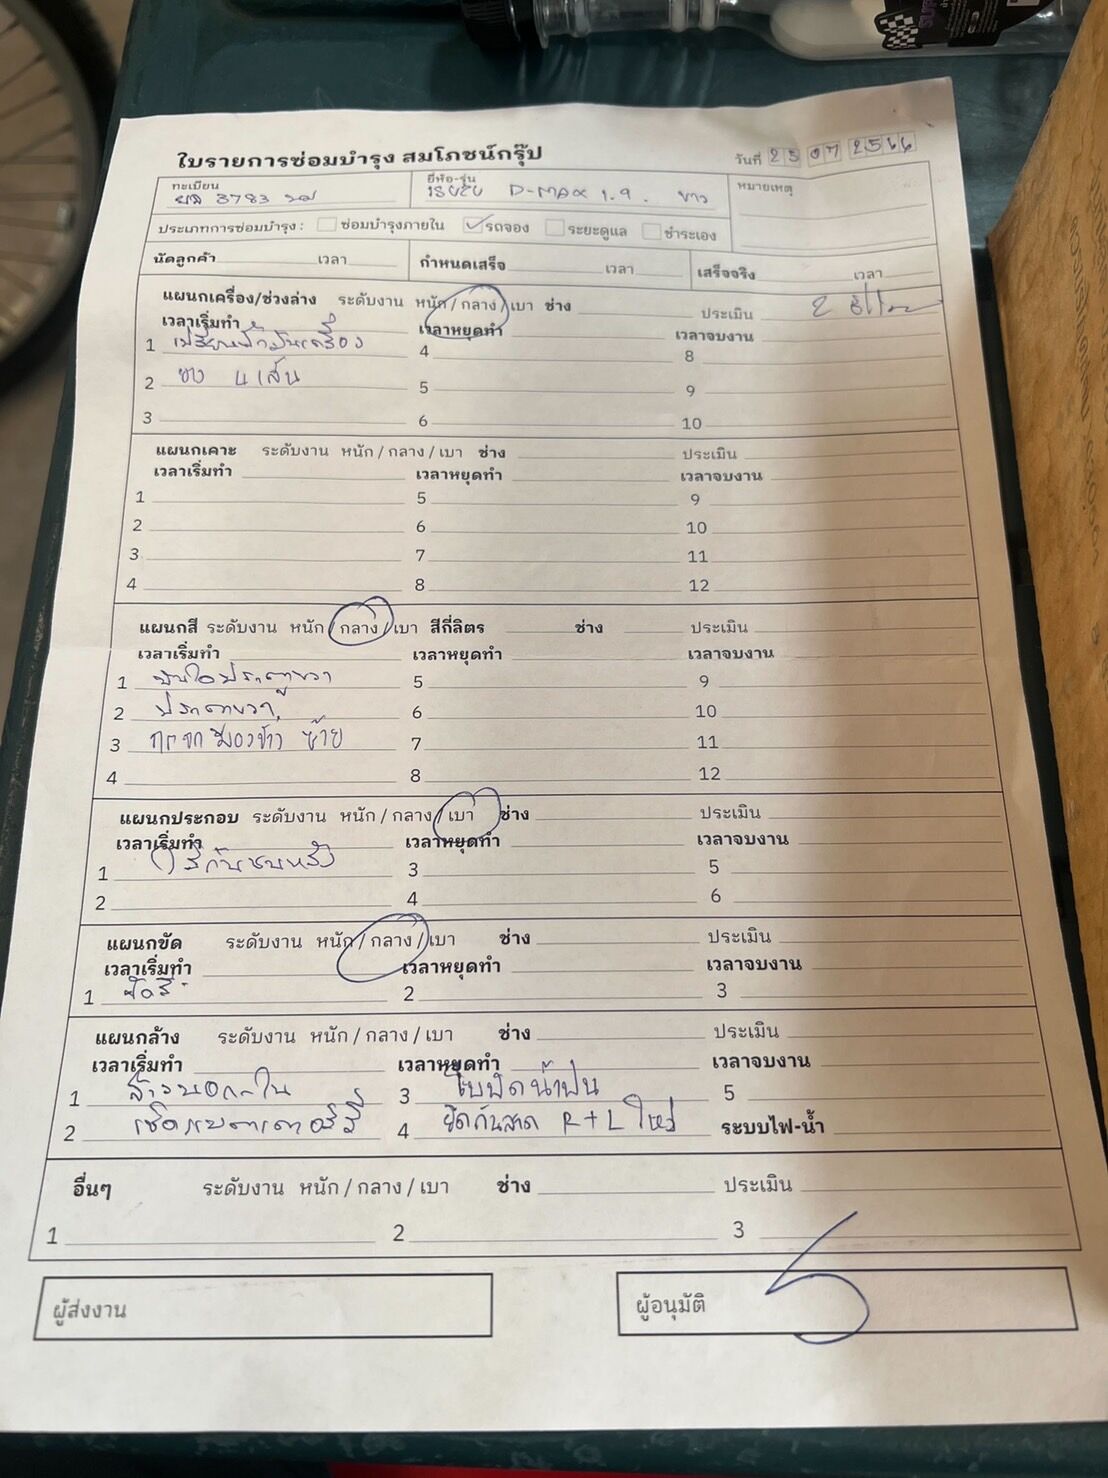 ใบรายการซ่อมบำรุง สมโภชน์กรุ๊ป
วันที่ 25 07 2566
ทะเบียน 3783
ยี่ห้อ-รุ่น ISUZU D-MAX 1.9 . ขาว
หมายเหตุ
ประเภทการซ่อมบำรุง : ซ่อมบำรุงภายใน ✓ รถจอง ระยะดูแล ชำระเอง
นัดลูกค้า เวลา กำหนดเสร็จ เวลา เสร็จจริง เวลา
แผนกเครื่อง/ช่วงล่าง ระดับงาน หนัก / กลาง / เบา ช่าง ประเมิน 2
เวลาเริ่มทำ เวลาหยุดทำ เวลาจบงาน
1 เปลี่ยนน้ำมันเครื่อง 4 8
2 ยาง 4 เส้น 5 9
3 6 10
แผนกเคาะ ระดับงาน หนัก / กลาง / เบา ช่าง ประเมิน
เวลาเริ่มทำ เวลาหยุดทำ เวลาจบงาน
1 5 9
2 6 10
3 7 11
4 8 12
แผนกสี ระดับงาน หนัก / กลาง / เบา สีกี่ลิตร ช่าง ประเมิน
เวลาเริ่มทำ เวลาหยุดทำ เวลาจบงาน
1 บันไดประตูขวา 5 9
2 ประตูขวา 6 10
3 กระจกมองข้าง ซ้าย 7 11
4 8 12
แผนกประกอบ ระดับงาน หนัก / กลาง / เบา ช่าง ประเมิน
เวลาเริ่มทำ เวลาหยุดทำ เวลาจบงาน
1 กันชนหลัง 3 5
2 4 6
แผนกขัด ระดับงาน หนัก / กลาง / เบา ช่าง ประเมิน
เวลาเริ่มทำ เวลาหยุดทำ เวลาจบงาน
1 ขัดสี 2 3
แผนกล้าง ระดับงาน หนัก / กลาง / เบา ช่าง ประเมิน
เวลาเริ่มทำ เวลาหยุดทำ เวลาจบงาน
1 ล้างนอก-ใน 3 ใบปัดน้ำฝน 5
2 เช็คแบตเตอรี่ 4 ยึดกันสาด R+L ใหม่ ระบบไฟ-น้ำ
อื่นๆ ระดับงาน หนัก / กลาง / เบา ช่าง ประเมิน
1 2 3
ผู้ส่งงาน ผู้อนุมัติ